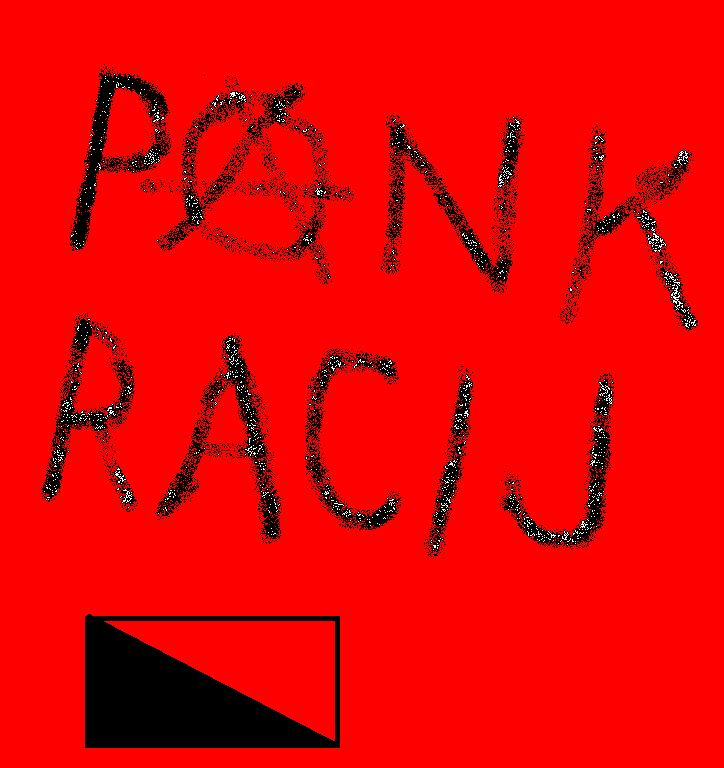 PANK
RACIJ